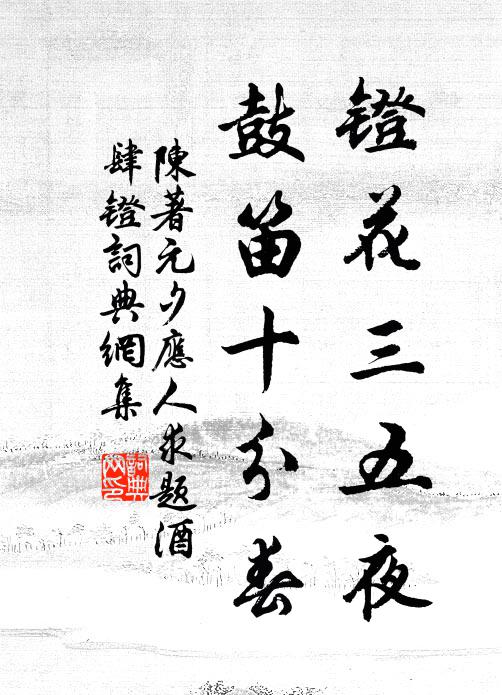 鐙花三五夜
鼓笛十分春
陳著元夕應人求題酒
肆鐙詞典網集
詞典
網印